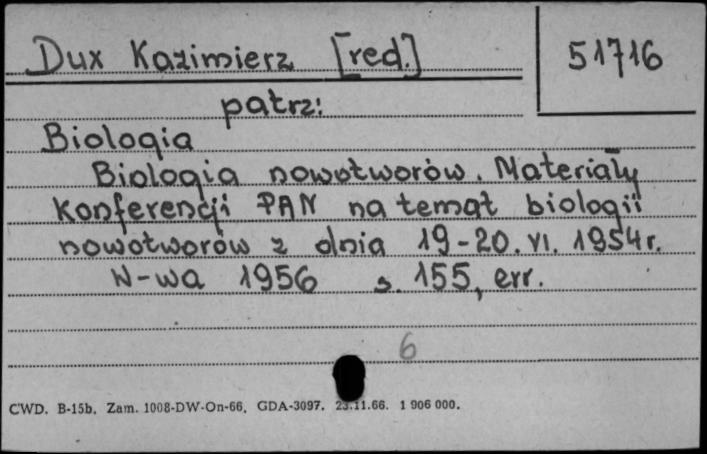 Dux Kazimierz [red.] 51716
patrz:
Biologia
Biologia nowotworów. Materiały
Konferencji PAN na temat biologii
nowotworów z dnia 19-20.VI.1954r.
W-wa 1956 s. 155, err.
6
CWD. B-15b. Zam. 1008-DW-On-66. GDA-3097. 23.11.66. 1 906 000.